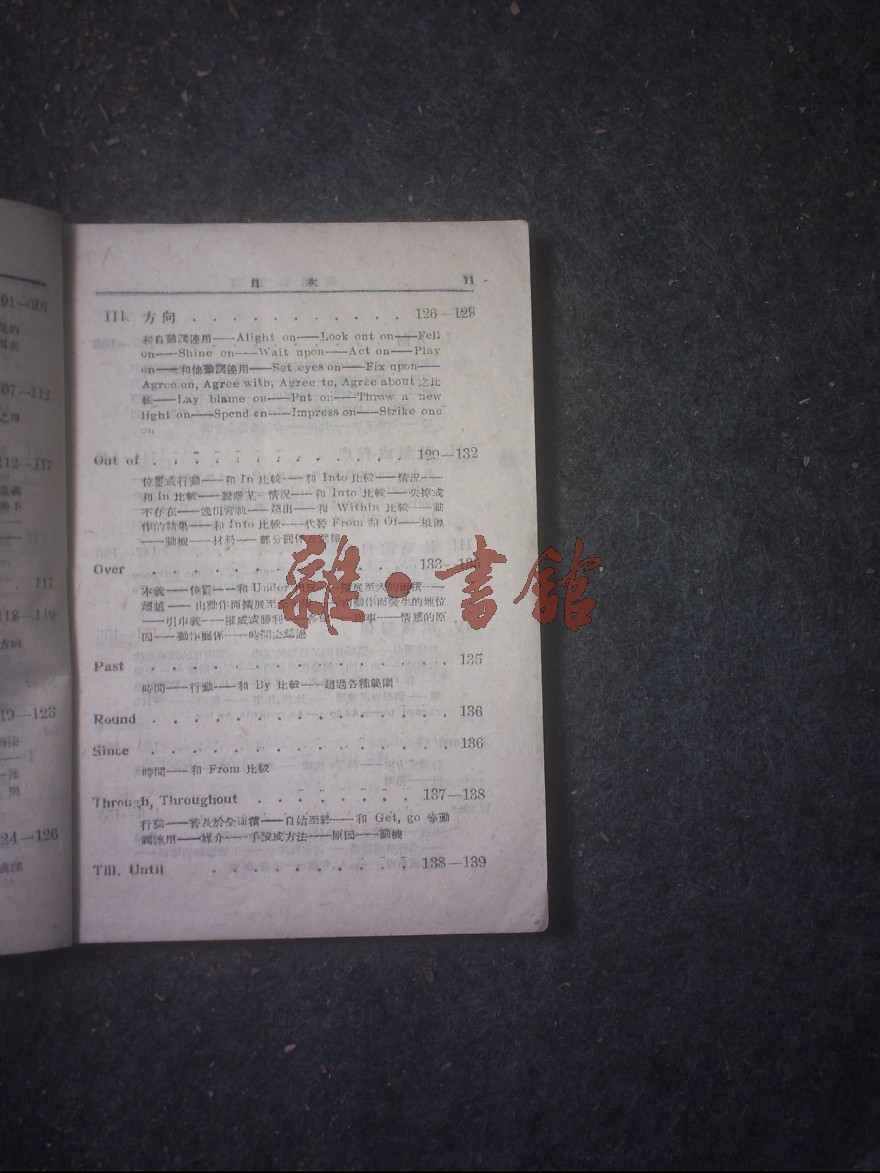 目 次 11
III. 方向 . . . . . . . . . . . 126—129
和自動詞連用——Alight on——Look out on——Fell
on——Shine on——Wait upon——Act on——Play
on——和他動詞連用——Set eyes on——Fix upon——
Agree on, Agree with, Agree to, Agree about 之比
較——Lay blame on——Put on——Throw a new
light on——Spend on——Impress on——Strike one
on
Out of . . . . . . . . . . . 129—132
位置或行動——和 In 比較——和 Into 比較——情況——
和 In 比較——脫離某一情況——和 Into 比較——失掉或
不存在——逸出常軌——超出——和 Within 比較——動
作的結果——和 Into 比較——代替 From 和 Of——根源
——動機——材料——部分
Over . . . . . . . . . . . 133
本義——位置——和 Under 擴展至大的面積——
超越——由動作而擴展至 動作而發生的地位
——引申義——權威或勝利 事——情感的原
因——動作 ——時間之超過
Past . . . . . . . . . . . 135
時間——行動——和 By 比較——超過各種範圍
Round . . . . . . . . . . . 136
Since . . . . . . . . . . . 136
時間——和 From 比較
Through, Throughout . . . . . . . 137—138
行動——普及於全面積——自始至終——和 Get, go 等動
詞連用——媒介——手段或方法——原因——動機
Till, Until . . . . . . . . . 138—139
雜·書館
01—107
07—112
112—117
117
118—119
19—123
24—126